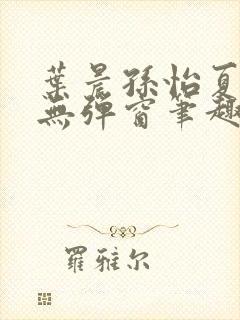 葉晨孫怡夏
無彈窗筆趣
羅雅尔